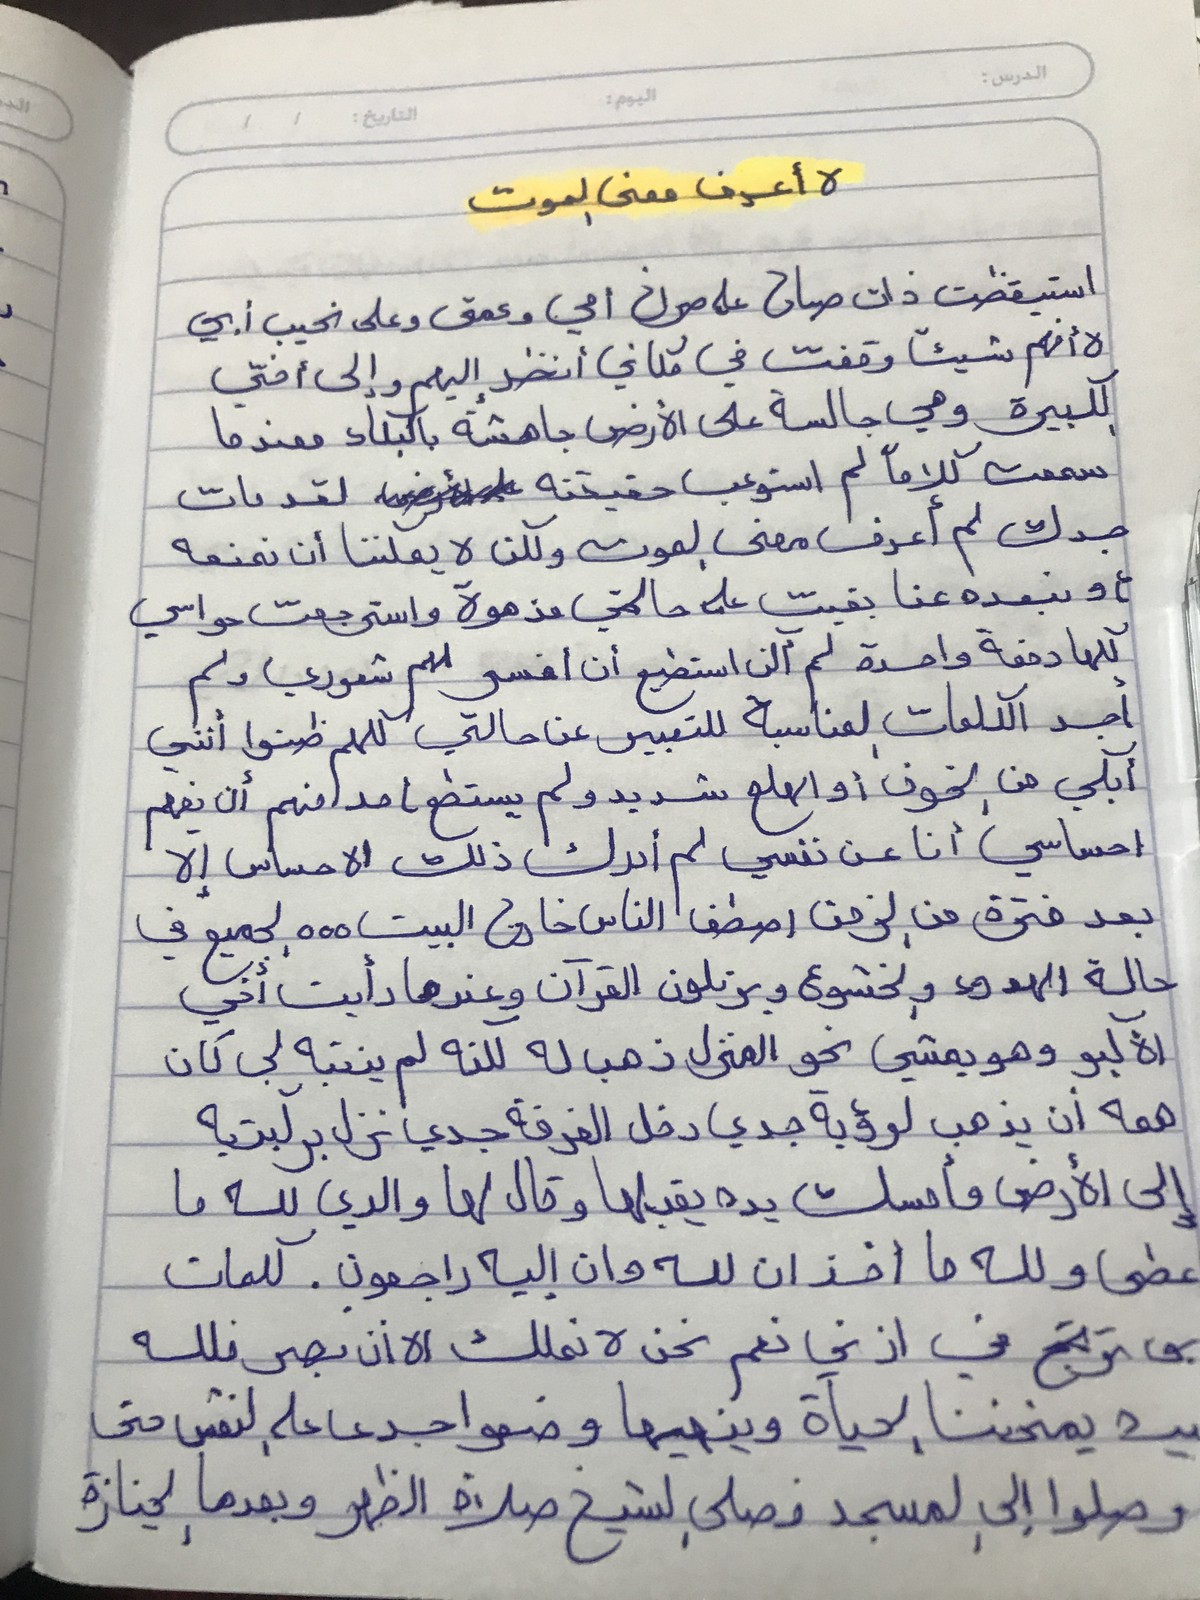 الدرس:
اليوم:
التاريخ: / /
لا أعرف معنى الموت
استيقظت ذات صباح على صراخ أمي وعمتي وعلى نحيب أبي
لا أفهم شيئاً وقفت في مكاني أنظر إليهم وإلى أختي
الكبيرة وهي جالسة على الأرض جاهشة بالبكاء وعندما
سمعت كلاماً لم استوعب حقيقته لقد مات
جدك لم أعرف معنى الموت ولكن لا يمكننا أن نمنعه
أو نبعده عنا بقيت على حالتي مذهولة واسترجعت حواسي
كلها دفعة واحدة لم أكن استطيع أن أفسر لهم شعوري ولم
أجد الكلمات المناسبة للتعبير عن حالتي كلهم ظنوا أنني
أبكي من الخوف أو الهلع شديد ولم يستطع احد منهم أن يفهم
احساسي أنا عن نفسي لم أدرك ذلك الاحساس إلا
بعد فترة من الزمن اصطف الناس خارج البيت ... الجميع في
حالة الهدوء والخشوع ويرتلون القرآن وعندها رأيت أخي
الأكبر وهو يمشي نحو المنزل ذهب له لكنه لم ينتبه لي كان
همه أن يذهب لرؤية جدي دخل الغرفة جدي نزل بركبتيه
إلى الأرض وأمسك يده يقبلها وقال لها والدي لله ما
عطى ولله ما أخذ ان لله وان إليه راجعون. كلمات
في اذني نعم نحن لا نملك الا أن نصبر فلله
بيده يمنحننا الحياة وينهيها وضعوا جدعا على النعش حتى
وصلوا إلى المسجد فصلى الشيخ صلاة الظهر وبعدها الجنازة